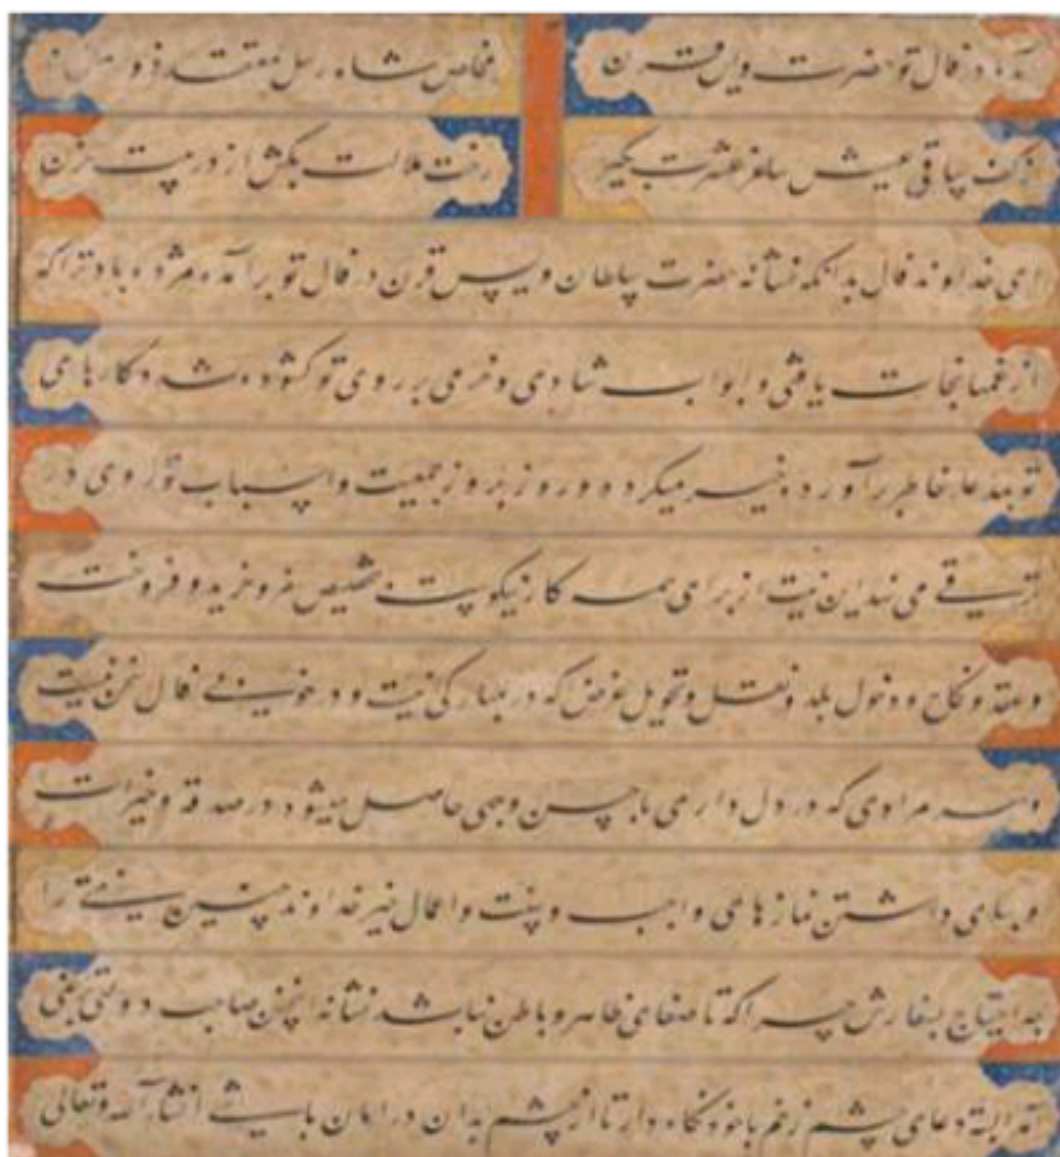 آمده در فال تو حضرت ویس قرن
خاص شاه رسل معتقد ذو المنن
از کف ساقی عیش ساغر عشرت بگیر
رخت ملالت بکش از در بیت حزن
ای خداوند فال بدانکه نشانه حضرت سلطان ویس قرن در فال تو برآمده مژده باد ترا که
از غمها نجات یافتی و ابواب شادی و خرمی بر روی تو کشوده شد و کارهای
تو بمدعا خاطر برآورده خیر میکردد و روز بروز جمعیت و اسباب تو روی در
ترقی می نهد این نیت از برای همه کار نیکوست تخصیص سفر و خرید و فروخت
و عقد و نکاح و دخول بلد و نقل و تحویل غرض که در مبارکی نیت و در خوبی فال سخن نیست
و هر مرادی که در دل داری باحسن وجهی حاصل میشود در صدقه و خیرات
و برپای داشتن نمازهای واجب و سنت و اعمال خیر خداوند چنین نیتی را
چه احتیاج بسفارش چرا که تا صفای ظاهر و باطن نباشد نشانه اینچنین صاحب دولتی
البته دعای چشم زخم با خود نکاه دار تا از چشم بدان در امان باشی انشاء الله تعالی